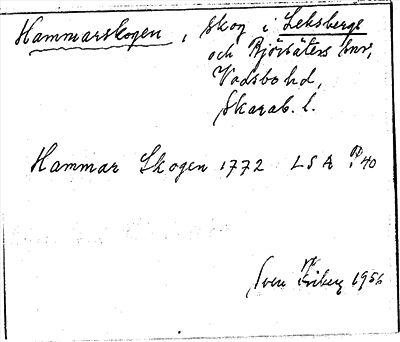 Hammarskogen, skog i Leksbergs
och Björsäters snr,
Vadsbo hd,
Skarab. l.
Hammar Skogen 1772 LSA P 40
Sven Friberg 1956